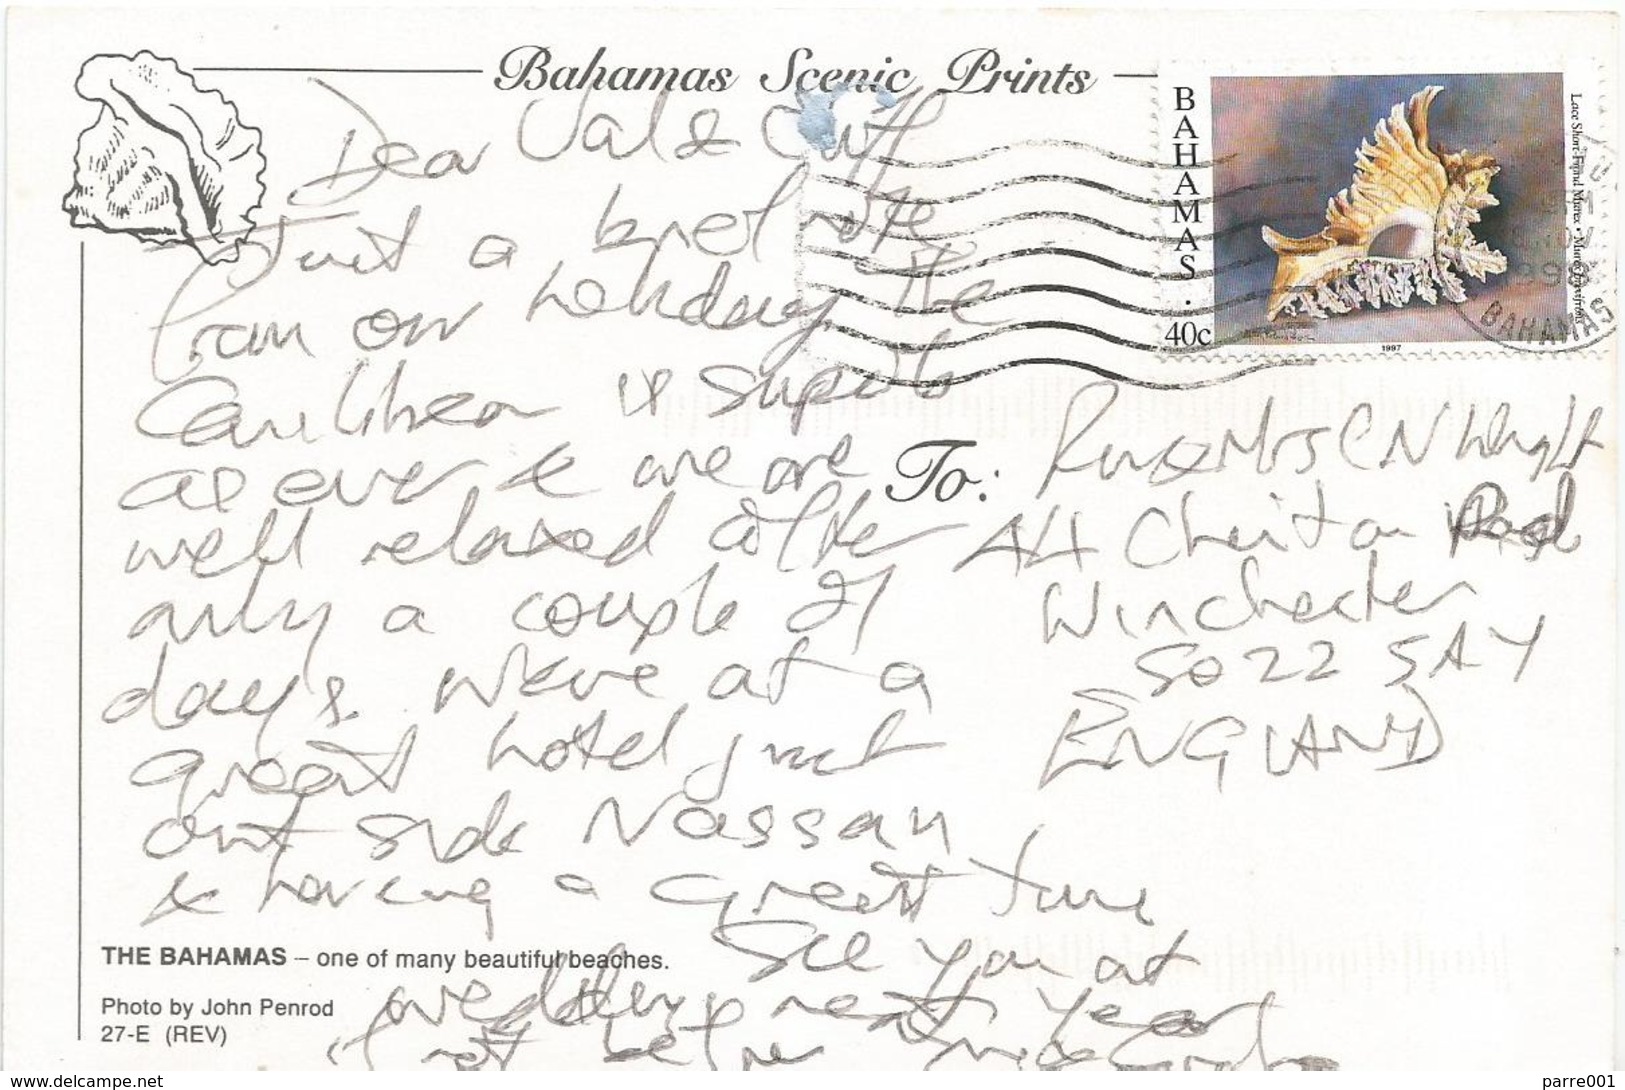 Bahamas Scenic Prints
Dear Val & Cliff
Just a brief note
from our holiday. The
Caribbean is superb
as ever & we are
well relaxed after
only a couple of
days. We're at a
great hotel just
out side Nassau
& having a great time
See you at
wedding next year
if not before
THE BAHAMAS – one of many beautiful beaches.
Photo by John Penrod
27-E (REV)
BAHAMAS . 40c
Lace Short-Frond Murex •
1997
BAHAMAS
To: Rev & Mrs C N Wright
Cheriton Road
Winchester
SO22 5AY
ENGLAND
www.delcampe.net
parre001